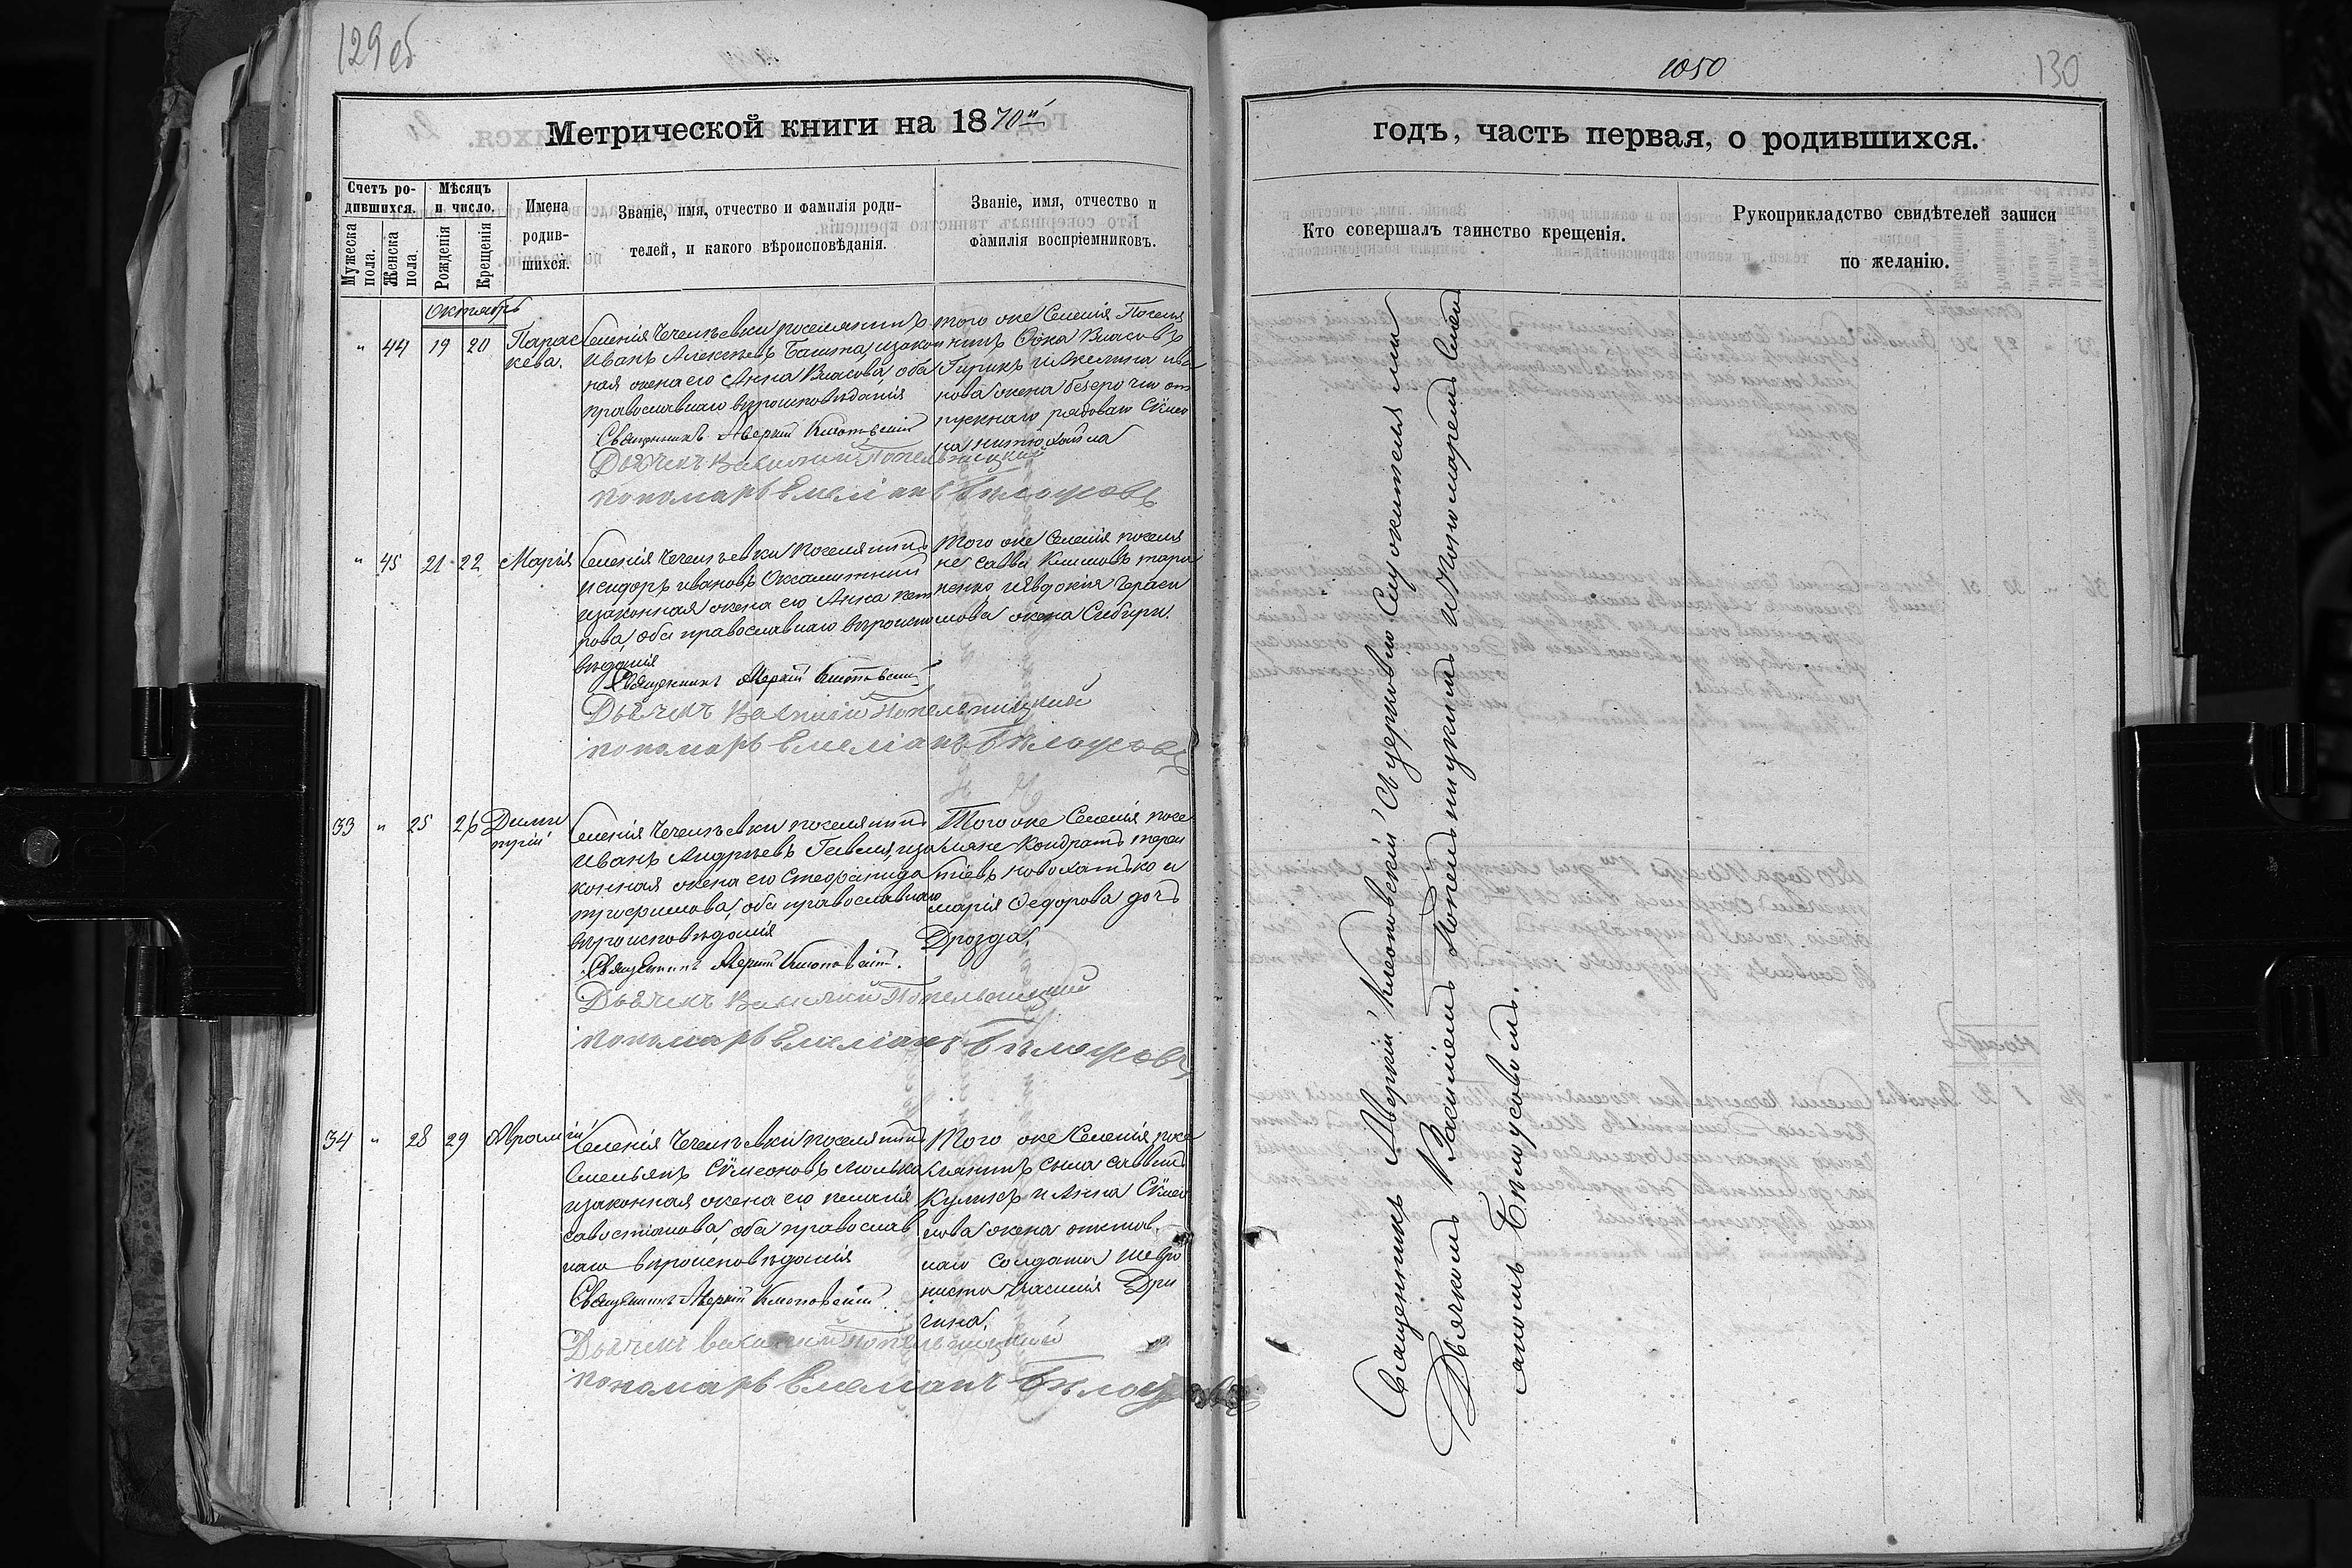 129 об
Метрической книги на 1870й
Счетъ ро-
дившихся.
Мѣсяцъ
и число.
Мужеска
пола.
Женска
пола.
Рожденія
Крещенія
Имена
родив-
шихся.
Званіе, имя, отчество и фамилія роди-
телей, и какого вѣроисповѣданія.
Званіе, имя, отчество и
фамилія воспріемниковъ.
Октябрь
" 44 19 20
Парас
кева.
Селенія Чечелѣевки поселянинъ
Иванъ Алексѣевъ Башта, и закон
ная жена его Анна Власова, оба
православнаго вѣроисповѣданія
Священникъ Аверкій Клюповскій
Дьячекъ Василий Попельницкий
пономарь Емеліанъ Бѣлоусовъ
того же Селенія Поселя
нинъ Фока Власовъ
Гирикъ и Акелина ива
нова жена безсрочно от
пускнаго рядоваго Сѵмео
на
" 45 21 22 Марія
Селенія Чечелѣевки поселянинъ
Исидоръ Ивановъ Оксамитный
и законная жена его Анна пет
рова, оба православнаго вѣроиспо
вѣданія
Священникъ Аверкій Клюповскій
Дьячекъ Василий Попельницкий
пономарь Емеліанъ Бѣлоусовъ
Того же Селенія поселя
не Савва Климовъ тара
ненко и Явдокія Гераси
мова жена Сибири.
33 " 25 26
Дими
трій
Селенія Чечелѣевки поселянинъ
Иванъ Андрѣевъ Гевеля, и за
конная жена его Стефанида
трофимова, оба православнаго
вѣроисповѣданія
Священникъ Аверкій Клюповскій.
Дьячекъ Василий Попельницкий
пономарь Емеліанъ Бѣлоусовъ
Того же Селенія посе
ляне Кондратъ терен
тіевъ новохатько и
Марія Федорова дочь
Дрозда.
34 " 28 29 Аврамій
Селенія Чечелѣевки поселянинъ
Емельянъ Сѵмеоновъ Люлька
и законная жена его пелагія
савостіанова, оба православ
наго вѣроисповѣданія
Священникъ Аверкій Клюповскій.
Дьячекъ Василий Попельницкий
пономарь Емеліанъ Бѣлоусовъ
Того же Селенія посе
лянинъ Сыла Саввинъ
Куликъ и Анна Сѵмео
нова жена отстав
наго Солдата шевро
ниста Василія Дри
гина.
1050
130
годъ, часть первая, о родившихся.
Кто совершалъ таинство крещенія.
Рукоприкладство свидѣтелей записи
по желанію.
Священникъ Аверкій Клюповскій Съ церковно Служителями
Дьячкомъ Василіемъ Попельницкимъ и Пономаремъ Емелі
аномъ Бѣлоусовымъ.